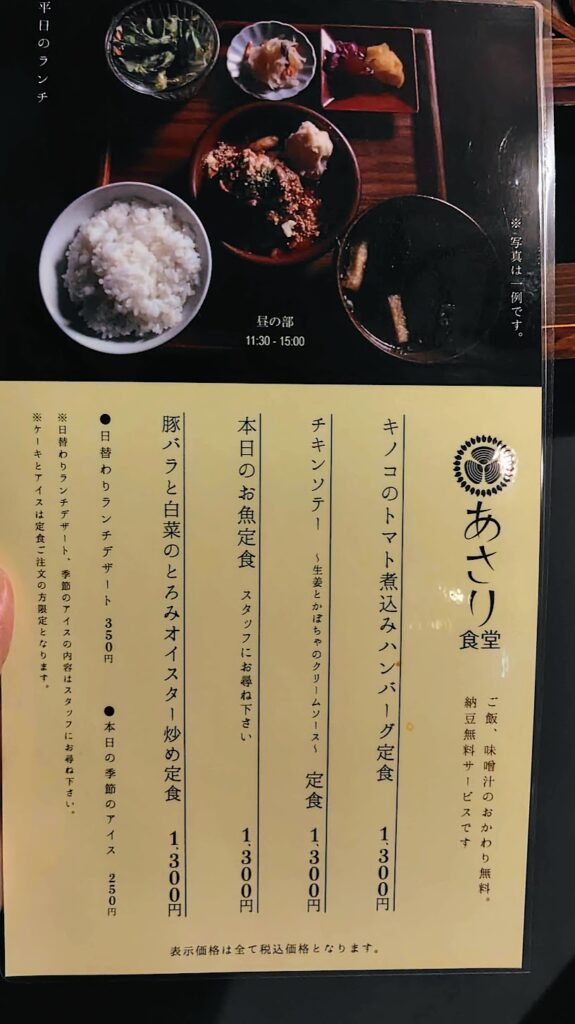 平日のランチ
※写真は一例です。
昼の部
11:30 - 15:00
あさり
食堂
ご飯、味噌汁のおかわり無料。
納豆無料サービスです
キノコのトマト煮込みハンバーグ定食 1,300円
チキンソテー ～生姜とかぼちゃのクリームソース～ 定食 1,300円
本日のお魚定食 スタッフにお尋ね下さい 1,300円
豚バラと白菜のとろみオイスター炒め定食 1,300円
●日替わりランチデザート 350円 ●本日の季節のアイス 250円
※日替わりランチデザート、季節のアイスの内容はスタッフにお尋ね下さい。
※ケーキとアイスは定食ご注文の方限定となります。
表示価格は全て税込価格となります。